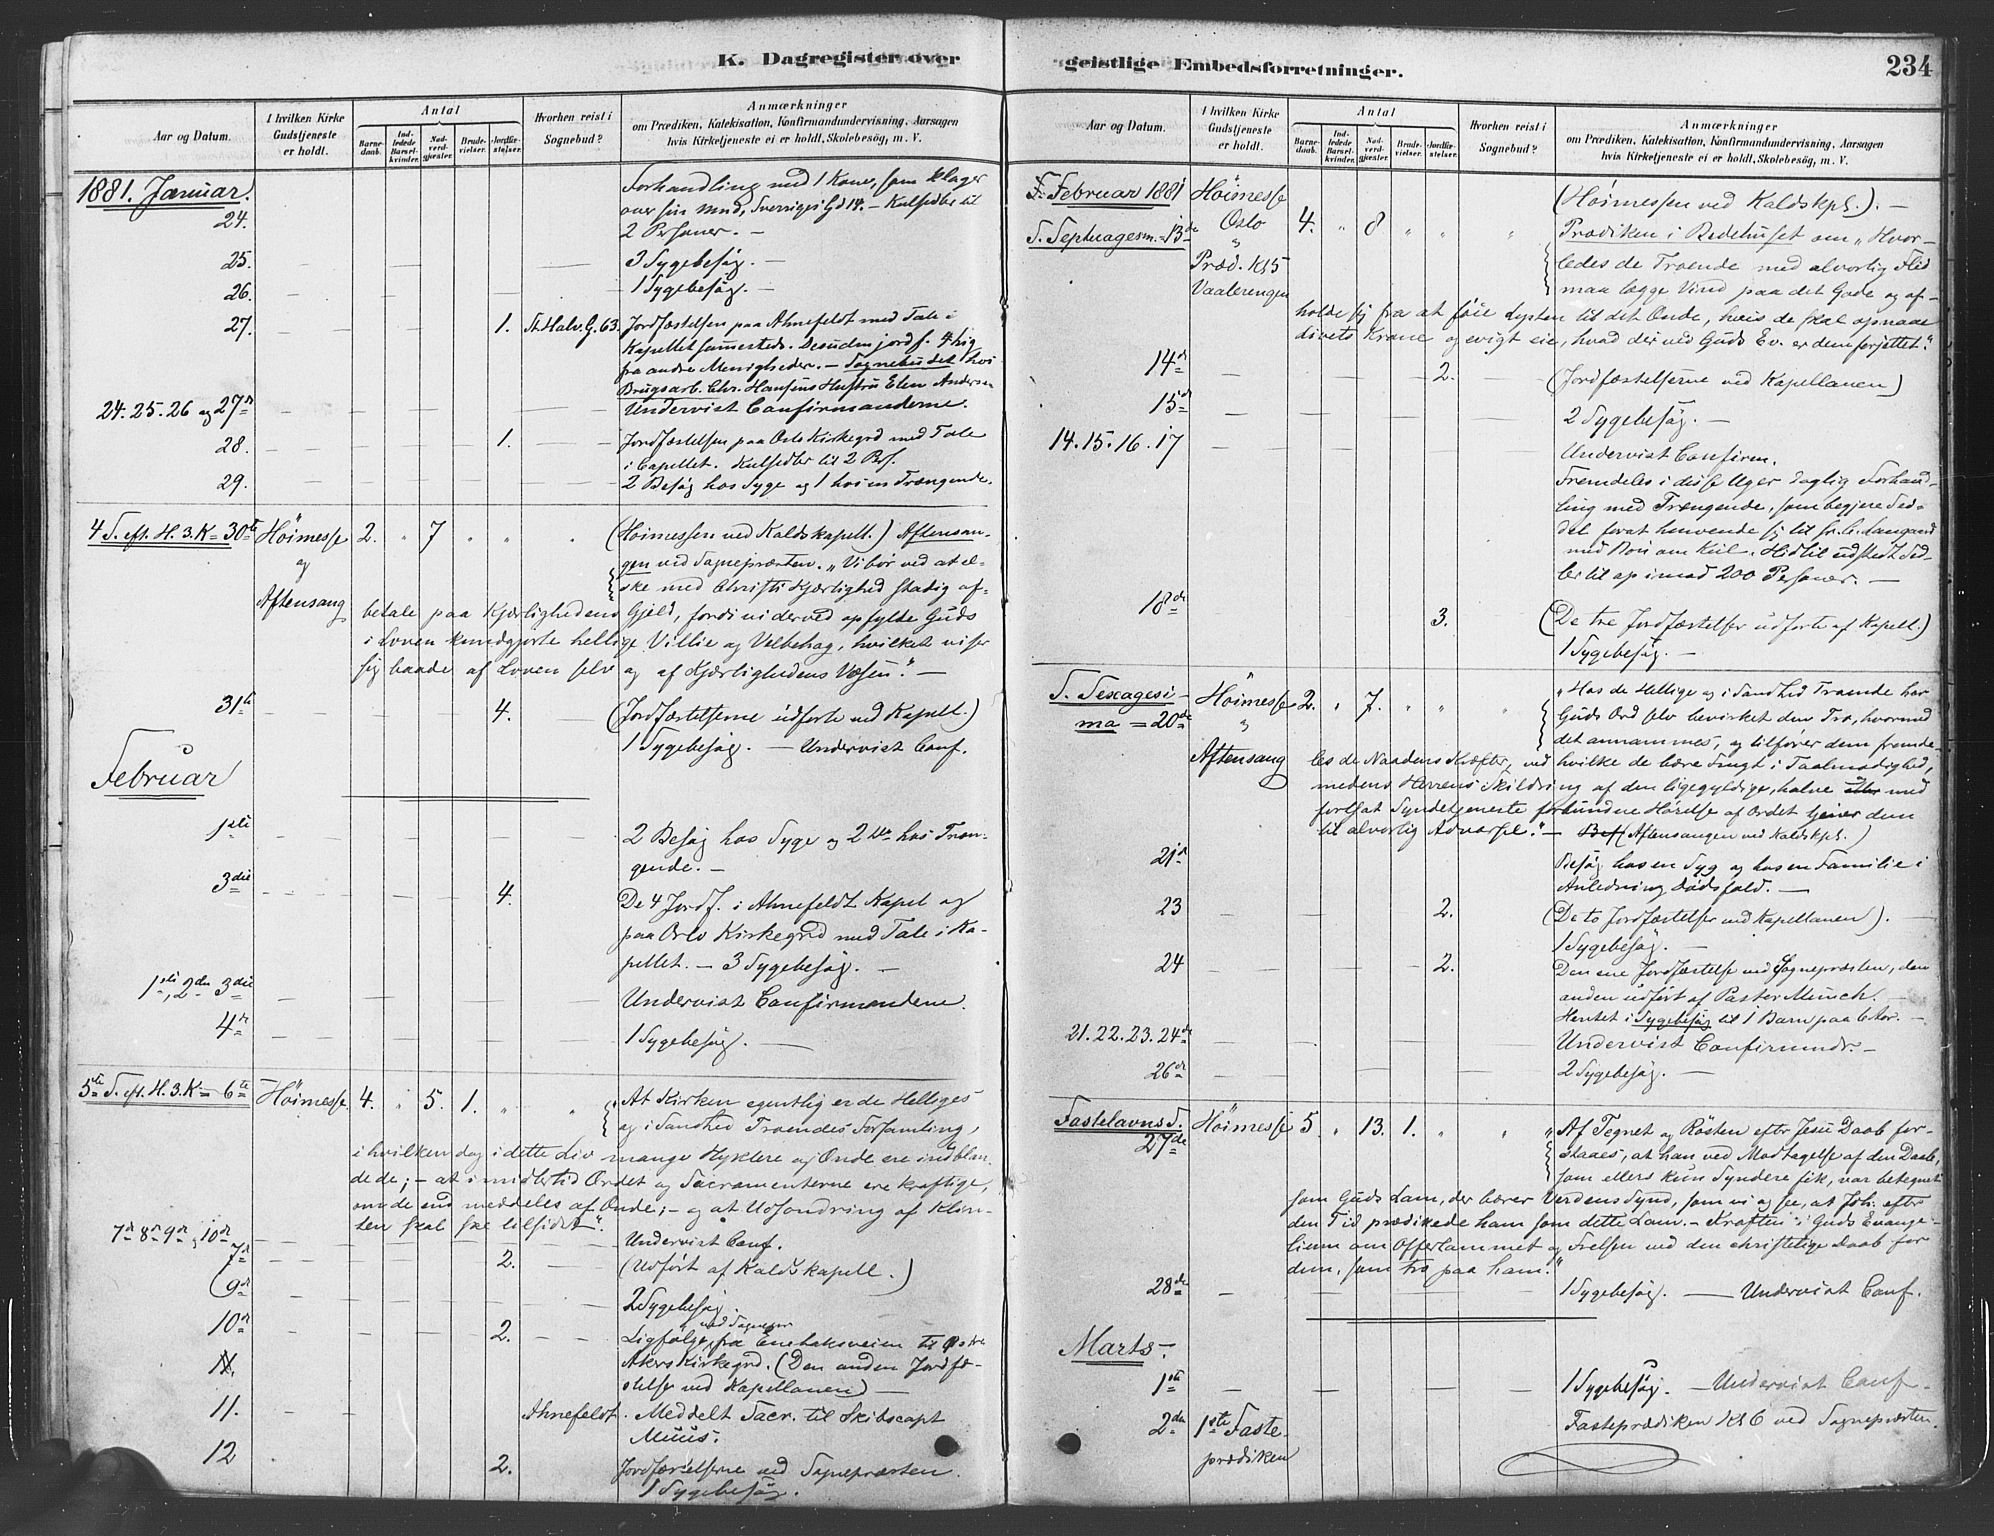 K. Dagregister over
Aar og Datum.
I hvilken Kirke Gudstjeneste er holdt.
Antal
Barnedaab.
Indledede Barselkvinder.
Nadverdgjester.
Brudevielser.
Jordfæstelser.
Hvorhen reist i Sognebud?
Anmærkninger
om Prædiken, Katekisation, Konfirmandundervisning, Aarsagen
hvis Kirketjeneste ei er holdt, Skolebesög, m. V.
1881. Januar.
24. Forhandling med 1 Kone, som klager
over sin Mand, Sverrigesgd 14. – Kulsedler til
2 Personer. –
25. 3 Sygebesøg. –
26. 1 Sygebesøg. –
27. 1. St. Halv. G. 63. Jordfæstelsen paa Ahnefeldt med Tale i
Kapellet sammesteds. Desuden jordf. 4 Lig
fra andre Menigheder. – Sognebudet hos
Brugsarb. Chr. Hansens Hustru Elen Andersen
24. 25. 26 og 27de Undervist Confirmanderne.
28. 1. Jordfæstelsen paa Oslo Kirkegrd med Tale
i Capellet. Kulsedler til 2 Prs.
29. 2 Besøg hos Syge og 1 hos en Trængende.
4 S. eft. H. 3. K = 30te Høimesse 2. " 7 " " " (Høimessen ved Kaldskapell.) Aftensan-
og gen ved Sognepræsten. „Vi bør ved at el-
ske med Christi Kjærlighed stadig af-
Aftensang betale paa Kjærlighedens Gjeld, fordi vi derved opfylde Guds
i Loven kundgjorte hellige Villie og Velbehag, hvilket viser
sig baade af Loven selv og af Kjærlighedens Væsen". –
31te 4. (Jordfæstelserne udførte ved Kapell.)
1 Sygebesøg. – Undervist Conf.
Februar
1ste 2 Besøg hos Syge og 2 do hos Træn-
gende. –
3die 4. De 4 Jordf. i Ahnefeldt Kapel og
paa Oslo Kirkegrd med Tale i Ka-
pellet. – 3 Sygebesøg. –
1ste, 2den 3die Undervist Confirmandene.
4de 1 Sygebesøg. –
5te S. eft. H. 3. K = 6te Høimesse 4. " 5. 1. " " At Kirken egentlig er de Helliges
og i Sandhed Troendes Forsamling,
i hvilken dog i dette Liv mange Hyklere og Onde ere indblan-
dede; – at imidlertid Ordet og Sacramenterne ere kraftige,
om de end meddeles af Onde; – og at Udsondring af Klin-
ten skal ske tilsidst".
7de 8de 9de 10de Undervist Conf.
7de 2. (Udført af Kaldskapell.)
(9de 2 Sygebesøg.
10de 2. Ligfølge ved Sognepr fra Enebaksveien til Østre
11. Akers Kirkegrd. (Den anden Jordfæ-
stelse ved Kapellanen) –
11. Ahnefeldt. Meddelt Sacr. til Skibscapt
Muus.
12 2. Jordfæstelserne ved Sognepræsten.
1 Sygebesøg.
geistlige Embedsforretninger.
234
Aar og Datum.
I hvilken Kirke Gudstjeneste er holdt.
Antal
Barnedaab.
Indledede Barselkvinder.
Nadverdgjester.
Brudevielser.
Jordfæstelser.
Hvorhen reist i Sognebud?
Anmærkninger
om Prædiken, Katekisation, Konfirmandundervisning, Aarsagen
hvis Kirketjeneste ei er holdt, Skolebesög, m. V.
Februar 1881 Høimesse (Høimessen ved Kaldskpl.). –
S. Septuagesm. = 13de Oslo 4. " 8 " " " Prædiken i Bedehuset om „Hvor-
" Præd. Kl 5 ledes de Troende med alvorlig Flid
Vaalerengen maa lægge Vind paa det Gode og af-
holde sig fra at føie Lysten til det Onde, hvis de skal opnaae
Livets Krone og evigt eie, hvad der ved Guds Ev. er dem forjettet".
14de 2. (Jordfæstelserne ved Kapellanen)
15de 2 Sygebesøg. –
14. 15. 16. 17 Undervist Confirm.
Fremdeles i disse Uger daglig Forhand-
ling med Trængende, som begjere Sed-
del forat henvende sig til Fr. C. Langaard
med Bøn om Kul. Hidtil udstedt Sed-
ler til op imod 200 Personer. –
18de 3. (De tre Jordfæstelser udførte af Kapell)
1 Sygebesøg. –
S. Sexagesi-
ma = 20de Høimesse 2. " 7. " " " „Hos de Hellige og i Sandhed Troende har
" Guds Ord selv bevirket den Tro, hvormed
det annammes, og tilfører dem fremde-
Aftensang les de Naadens Kræfter, ved hvilke de bære Frugt i Taalmodighed,
medens Herrens Skildring af den ligegyldige, halve eller med
fortsat Syndetjeneste forbundne Hørelse af Ordet tjener dem
til alvorlig Advarsel." – (Aftensangen ved Kaldskpl.)
21de Besøg hos en Syg og hos en Familie i
Anledning Dødsfald. –
23 2. (De to Jordfæstelser ved Kapellanen). –
1 Sygebesøg. –
24 2. Den ene Jordfæstelse ved Sognepræsten, den
anden udført af Pastor Münch. –
Hentet i Sygebesøg til 1 Barn paa 6 Aar. –
21. 22. 23. 24de Undervist Confirmndr. –
26de 2 Sygebesøg. –
Fastelavns S.
27de Høimesse 5. " 13. 1. " " „Af Tegnet og Røsten efter Jesu Daab for-
staaes, at han ved Modtagelse af den Daab,
som ellers kun Syndere fik, var betegnet
som Guds Lam, der bærer Verdens Synd, som vi og se, at Joh. efter
den Tid prædikede ham som dette Lam. – Kraften i Guds Evange-
lium om Offerlammet og Frelsen ved den christelige Daab for
dem, som tro paa ham."
28de 1 Sygebesøg. – Undervist Conf.
Marts –.
1ste 1 Sygebesøg. – Undervist Conf –
2den 1ste Faste- Fasteprædiken Kl 6 ved Sognepræsten.
prædiken